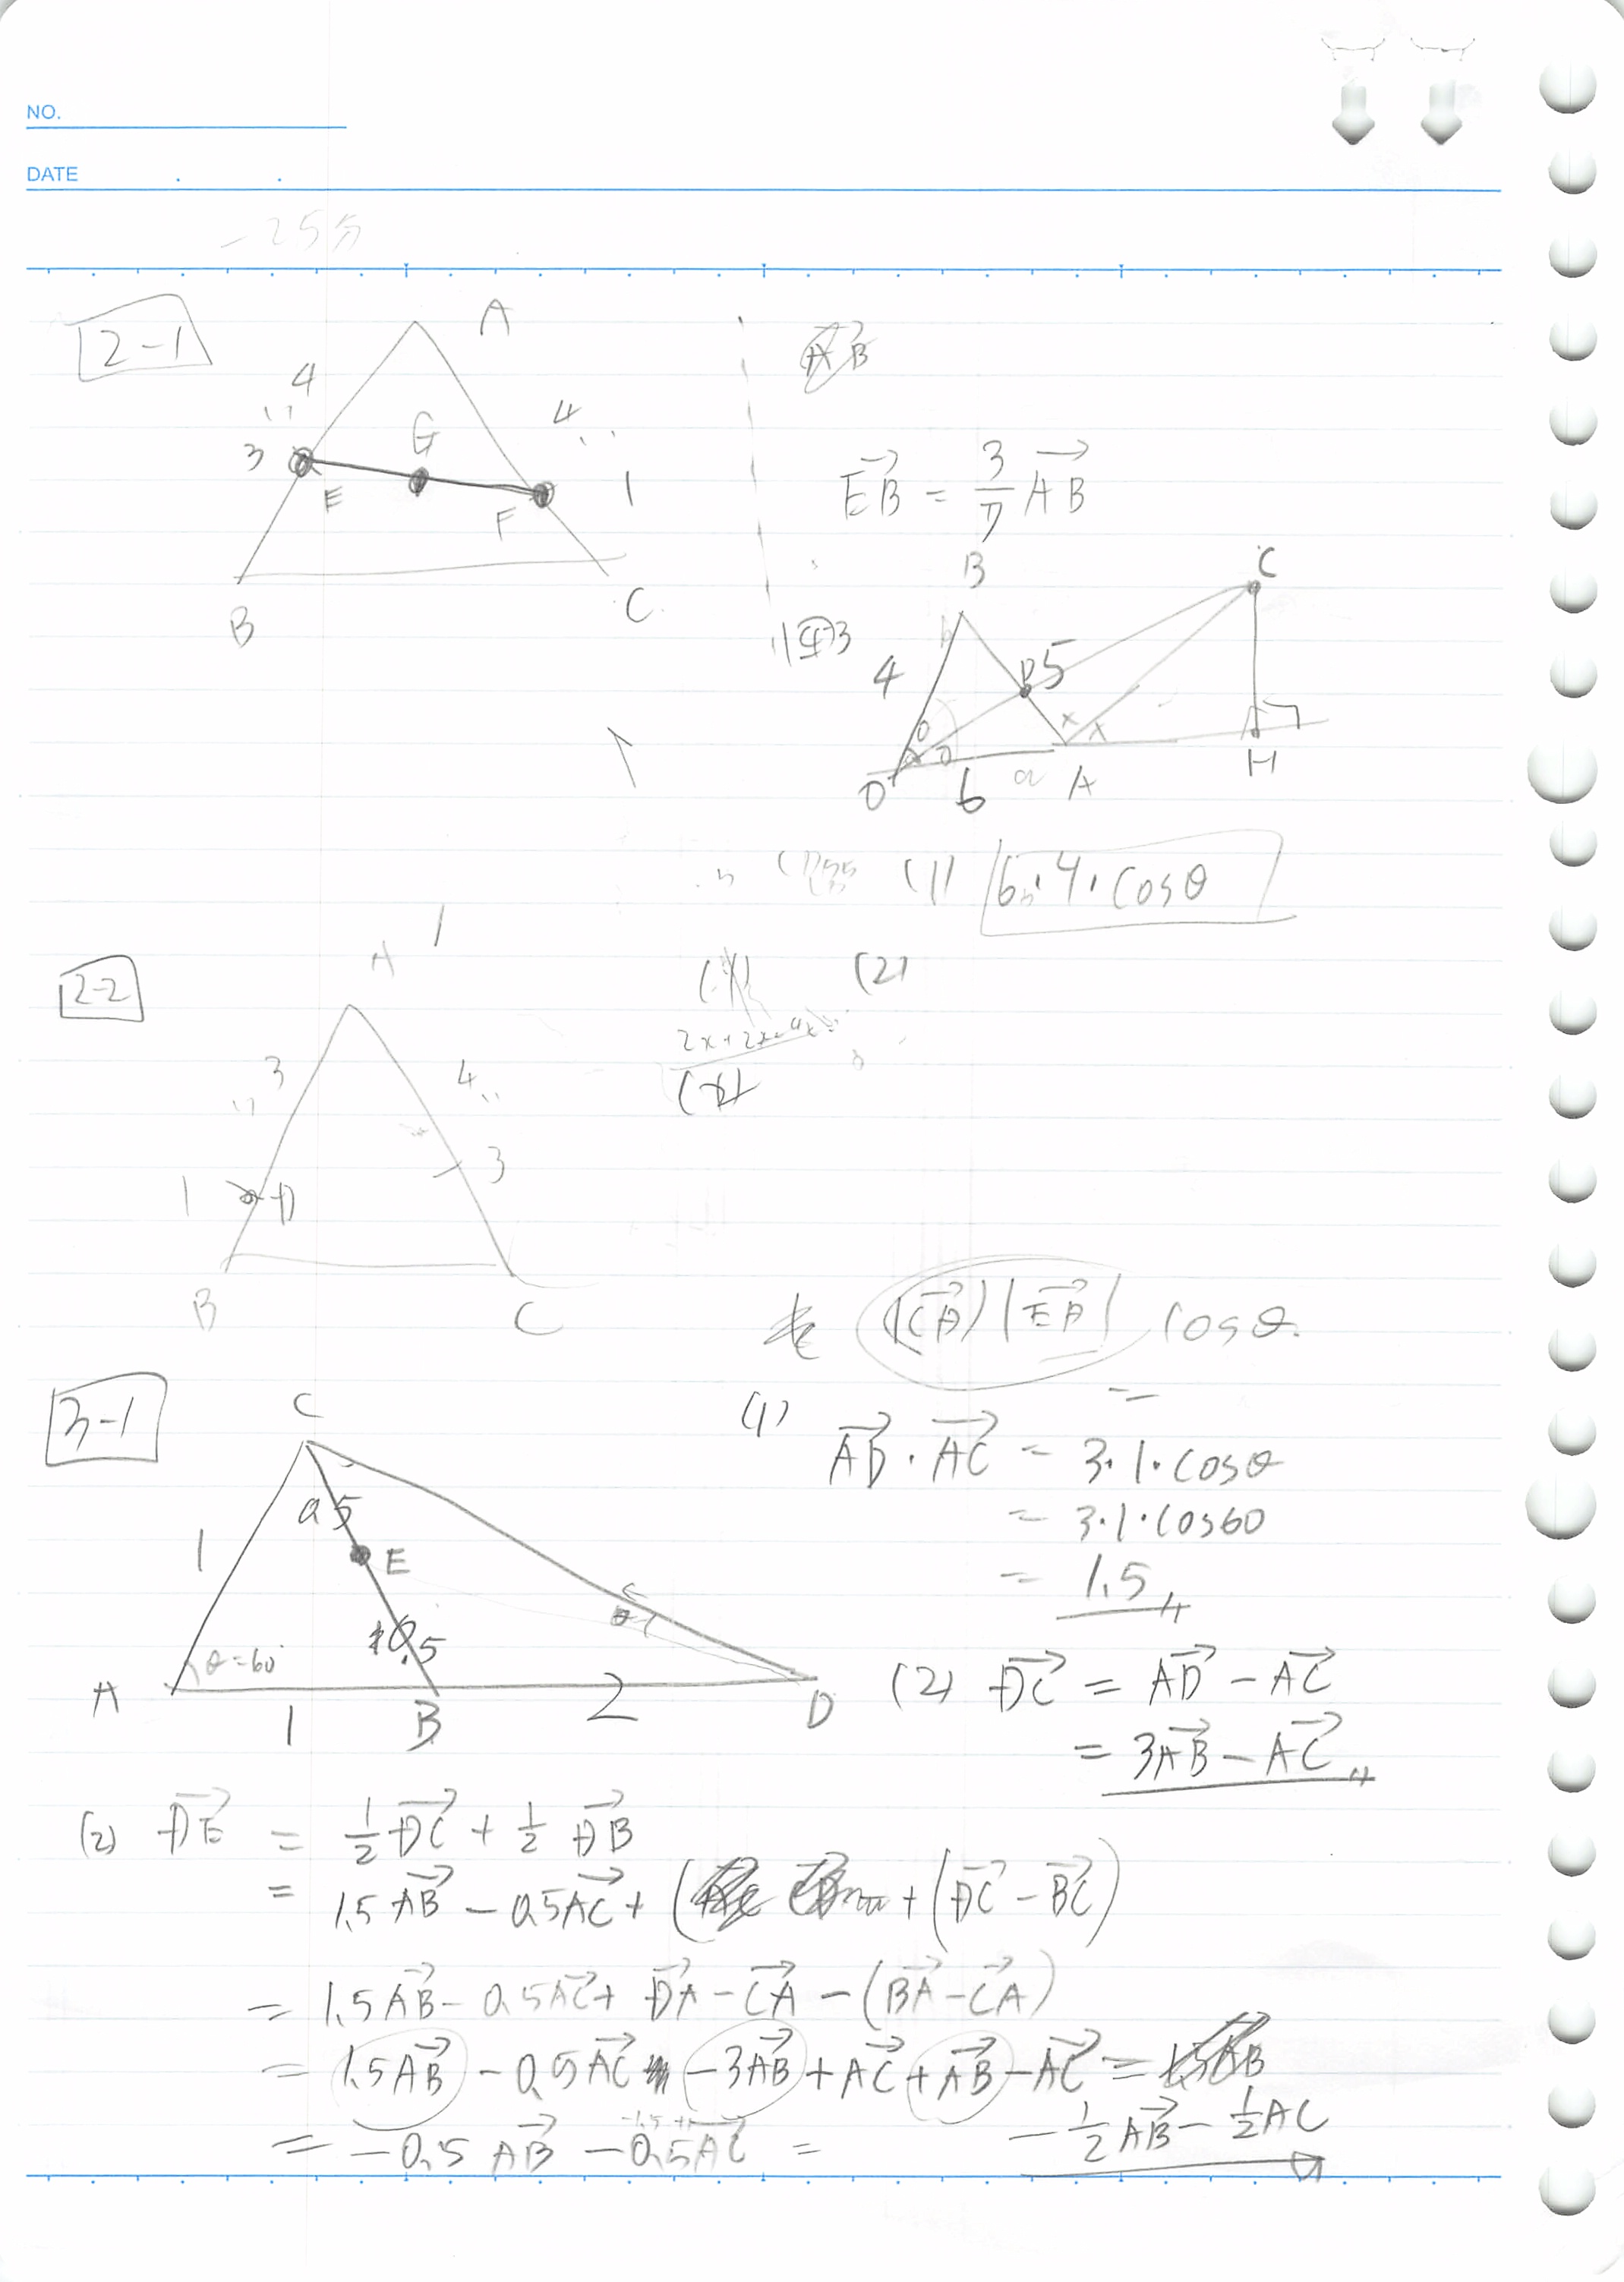 NO.
DATE
-25分
2-1
A
4
3
E
G
F
4
1
B
C
→EB = 3/7 →AB
B
C
4
P
5
O
6
a
A
H
(1) 6・4・cosθ
(2)
2-2
A
3
4
1
D
3
B
C
|→EA| cosθ
3-1
C
1
0.5
E
0.5
θ=60°
A
1
B
2
D
(1)
→AD・→AC = 3・1・cosθ
= 3・1・cos60
= 1.5
(2) →DC = →AD - →AC
= 3→AB - →AC
(2) →DE = 1/2 →DC + 1/2 →DB
= 1.5→AB - 0.5→AC + (→DC - →BC)
= 1.5→AB - 0.5→AC + →DA - →CA - (→BA - →CA)
= 1.5→AB - 0.5→AC -3→AB + →AC + →AB - →AC =
= -0.5→AB - 0.5→AC = -1/2→AB - 1/2AC